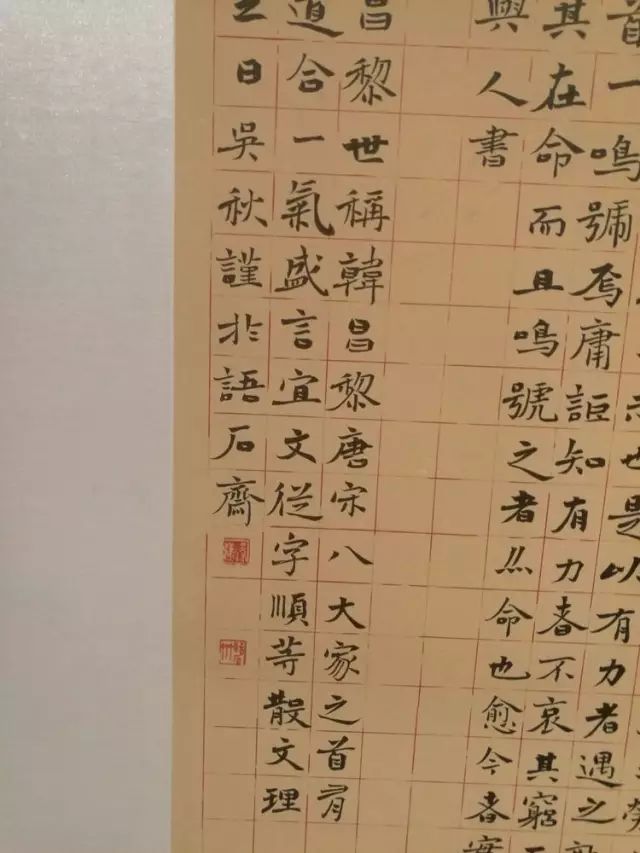 也是以有力者遇之
首一鳴號焉庸詎知有力者不哀其窮而
其在命而且鳴號之者亦命也愈今者實
興人書
昌黎世稱韓昌黎唐宋八大家之首有
道合一氣盛言宜文從字順等散文理
日吳秋謹於語石齋